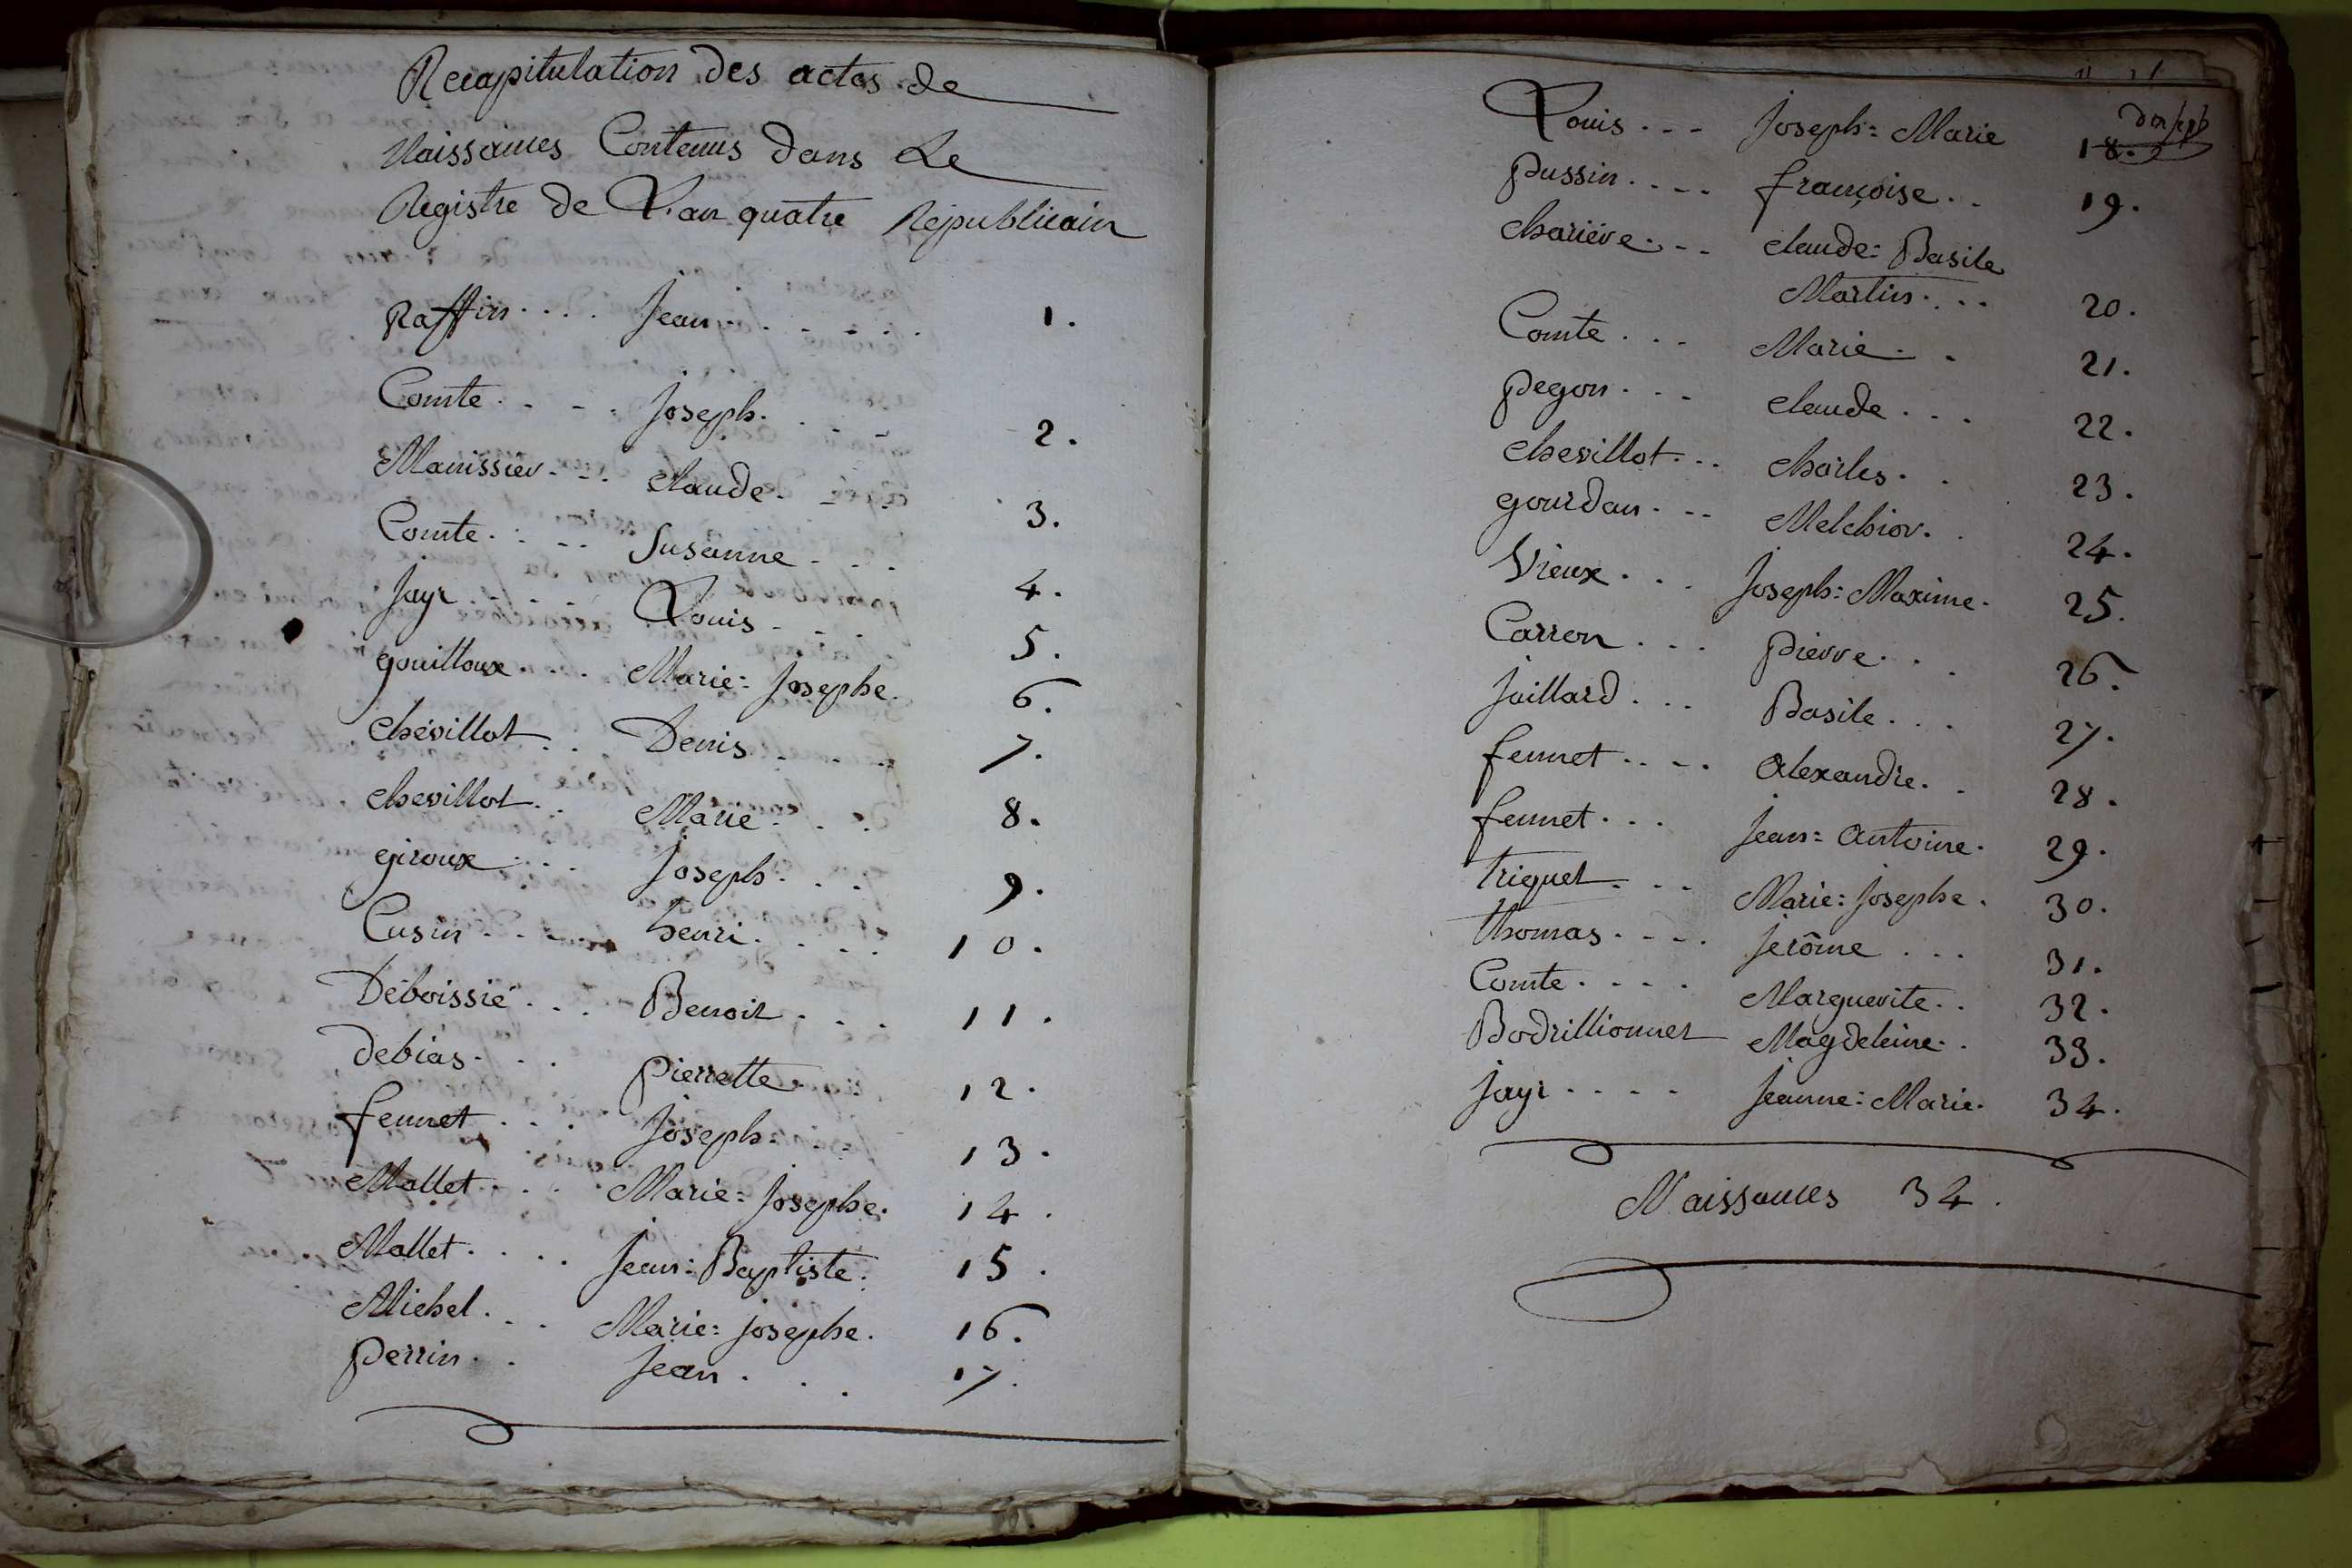 Recapitulation des actes de
Naissances Contenus dans Le
Registre de L'an quatre Républicain
Raffin .... Jean ...... 1.
Comte .... Joseph ... 2.
Manissier ... claude ... 3.
Comte .... Susanne .... 4.
Jayr .... Louis .... 5.
gouilloux .... Marie = Josephe. 6.
chevillot ... Denis .... 7.
chevillot ... Marie ... 8.
giroux .... Joseph .... 9.
Cusin .... henri .... 10.
Déboissié ... Benoit .... 11.
debias ... pierrette. 12.
fennet .... Joseph ... 13.
Mallet .... Marie = Josephe. 14.
Mallet .... Jean = Baptiste. 15.
Michel ... Marie = Josephe. 16.
perrin .. Jean ... 17.
Louis ... Joseph = Marie 18.
pussin .... françoise .. 19.
chariére ... claude = Basile
Martin ... 20.
Comte ... Marie .. 21.
pegon ... claude ... 22.
chevillot ... charles .. 23.
gourdan ... Melchior .. 24.
Vieux ... Joseph = Maxime. 25.
Carron ... pierre ... 26.
Jaillard ... Basile ... 27.
fennet .... alexandre .. 28.
fennet ... Jean = antoine. 29.
triquet ... Marie = Josephe. 30.
thomas .... Jerôme ... 31.
Comte .... Marguerite .. 32.
Bodrillionnet Magdeleine .. 33.
Jayr .... Jeanne = Marie. 34.
Naissances 34.